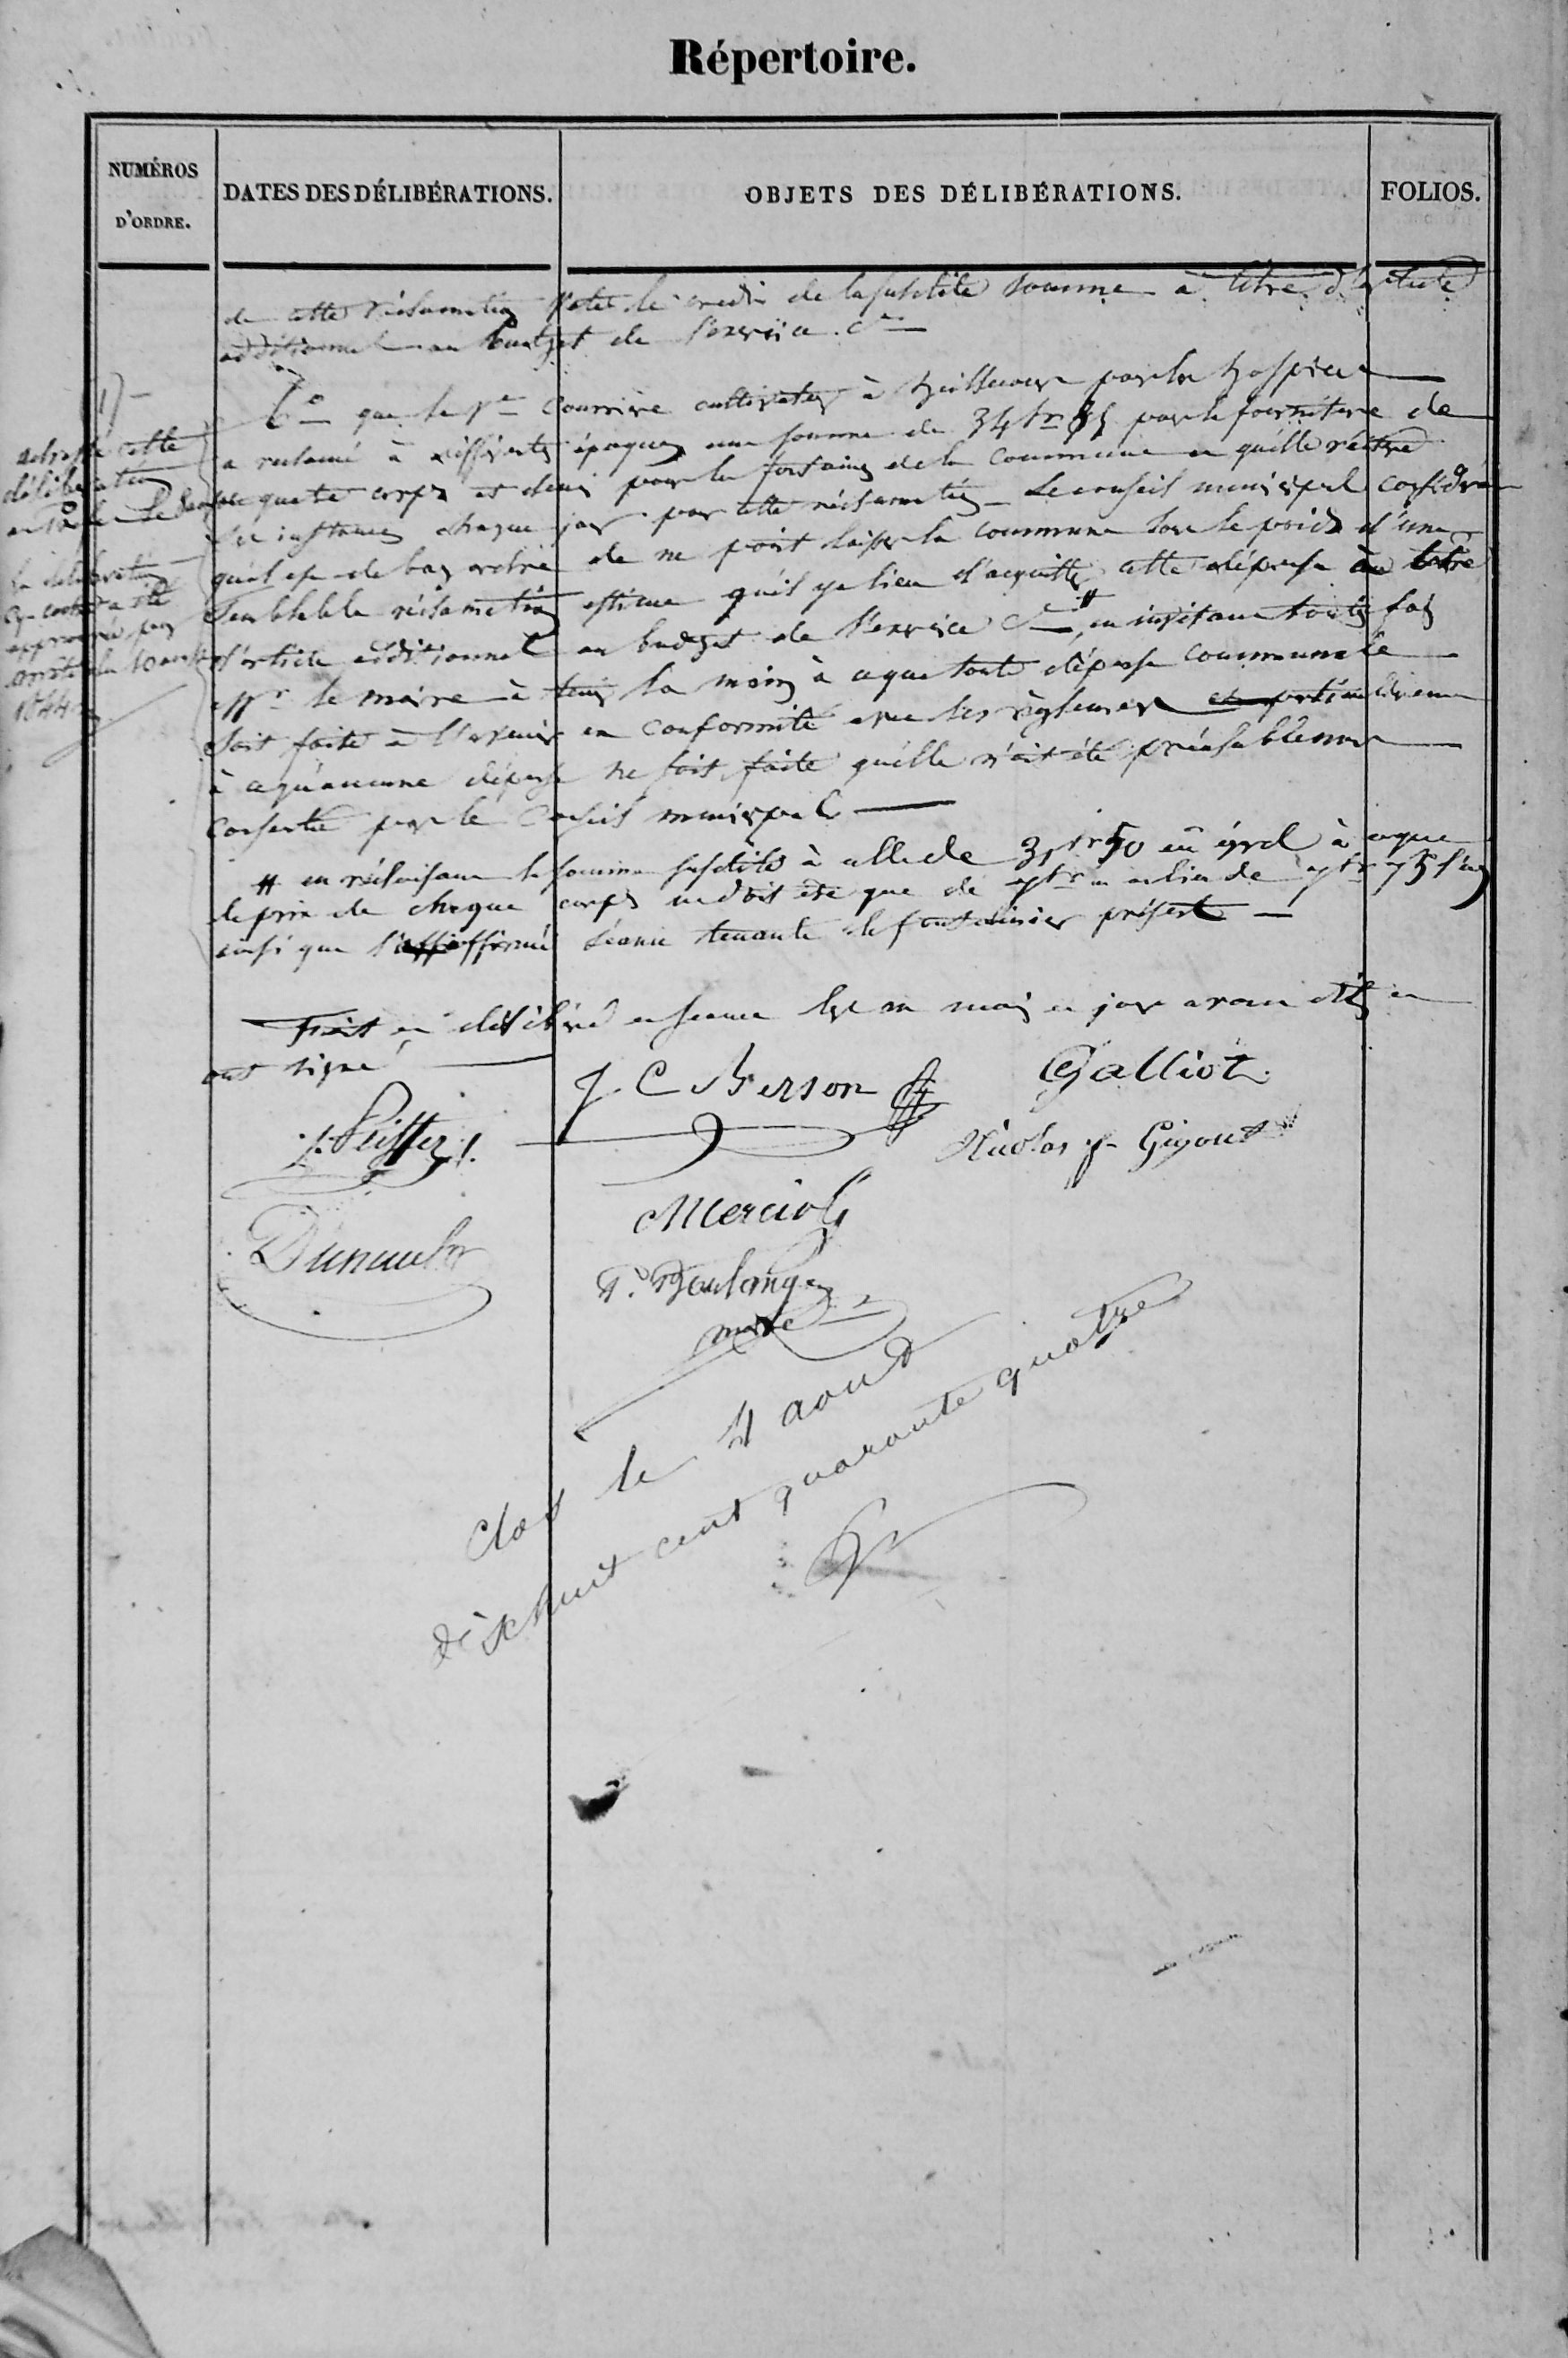 Répertoire.
NUMÉROS
D'ORDRE.
DATES DES DÉLIBÉRATIONS.
OBJETS DES DÉLIBÉRATIONS.
FOLIOS.
de cette réclamation vote le credit de la susdite somme à titre d'article
additionnel au Budget de l'exercice Ct
6° que le Sr Courrière cultivateur à par les hospices
a reclamé à différentes époques une somme de 34 fr pour la fourniture de
quatre corps et demi pour les fontaines de la commune et qu'elle
ses instances chaque jour par cette réclamation - Le conseil municipal considérant
qu'il est de bon ordre de ne point laisser la commune sous le poids d'une
semblable réclamation estime qu'il y a lieu d'acquitter cette dépense à titre
d'article additionnel au budget de l'exercice Ct #, en invitant toutes fois
Mr le maire à tenir la main à ce que toute dépense communale
soit faite à l'avenir en conformité avec les règlements
à ce qu'aucune dépense ne soit faite qu'elle n'ait été préalablement
consentie par le Conseil municipal
# en réduisant la somme susdite à celle de 31 fr 50 eu égard à ce que
le prix de chaque corps ne doit être que de 7 fr au lieu de 7 fr 75 l'un
ainsi que l'a affirmé séance tenante le fontainier présent
Fait et délibéré en séance les an mois et jour avant dits et
ont signé
(1)
adressé cette
délibération
la délibération
ci contre a été
approuvée par
arrêté du 10 août
1844
J. C Berson
Galliot
Nicolas Gigout
Merciol
Dunault
P. Boulanger
maire
Clos le 4 aout
dixhuit cent quarante quatre